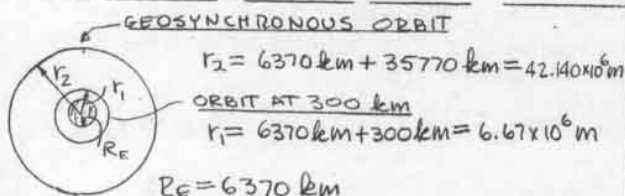 GEOSYNCHRONOUS ORBIT
r₂ = 6370 km + 35770 km = 42.140×10⁶ m
r₂
r₁
ORBIT AT 300 km
r₁ = 6370 km + 300 km = 6.67×10⁶ m
R_E
R_E = 6370 km